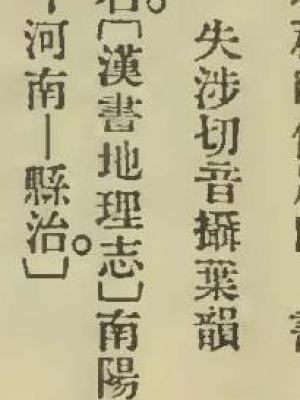 失涉切音攝葉韻
。〔漢書地理志〕南陽
河南—縣治。〕